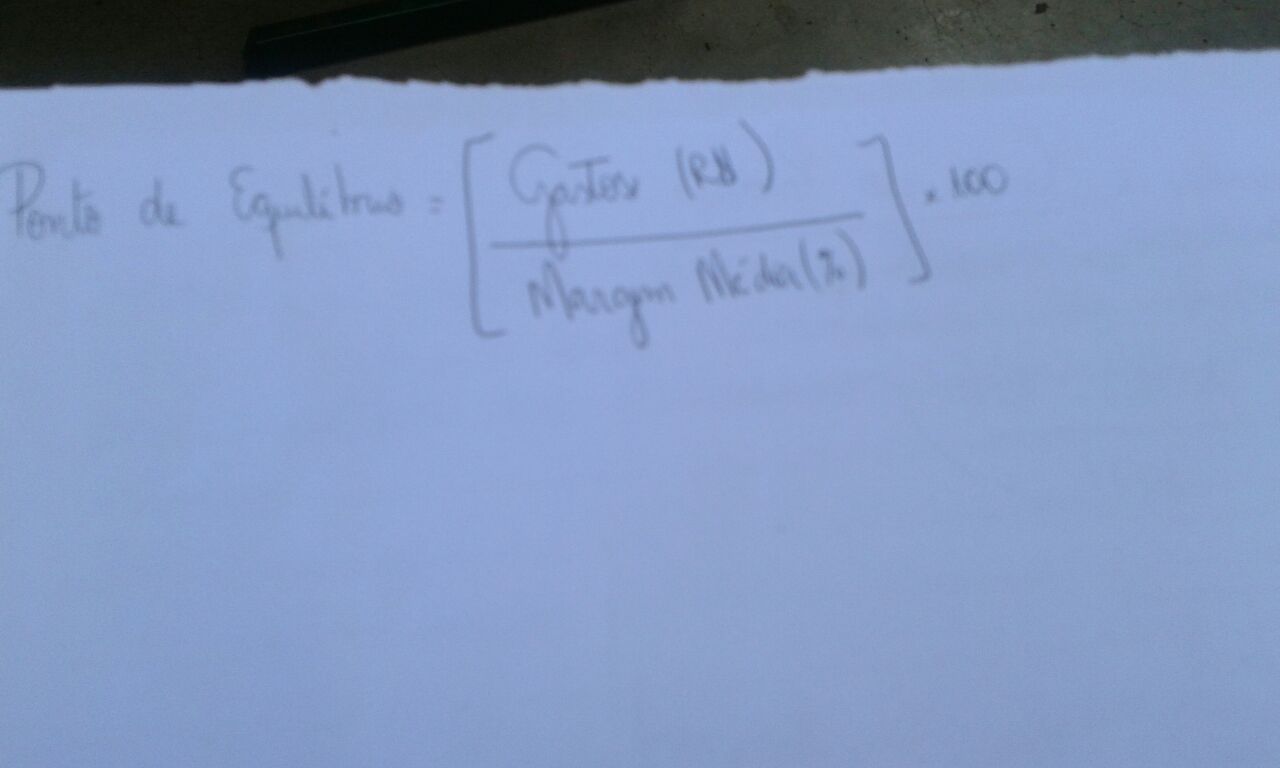 Ponto de Equilíbrio = [ Gastos (R$) / Margem Média (%) ] . 100